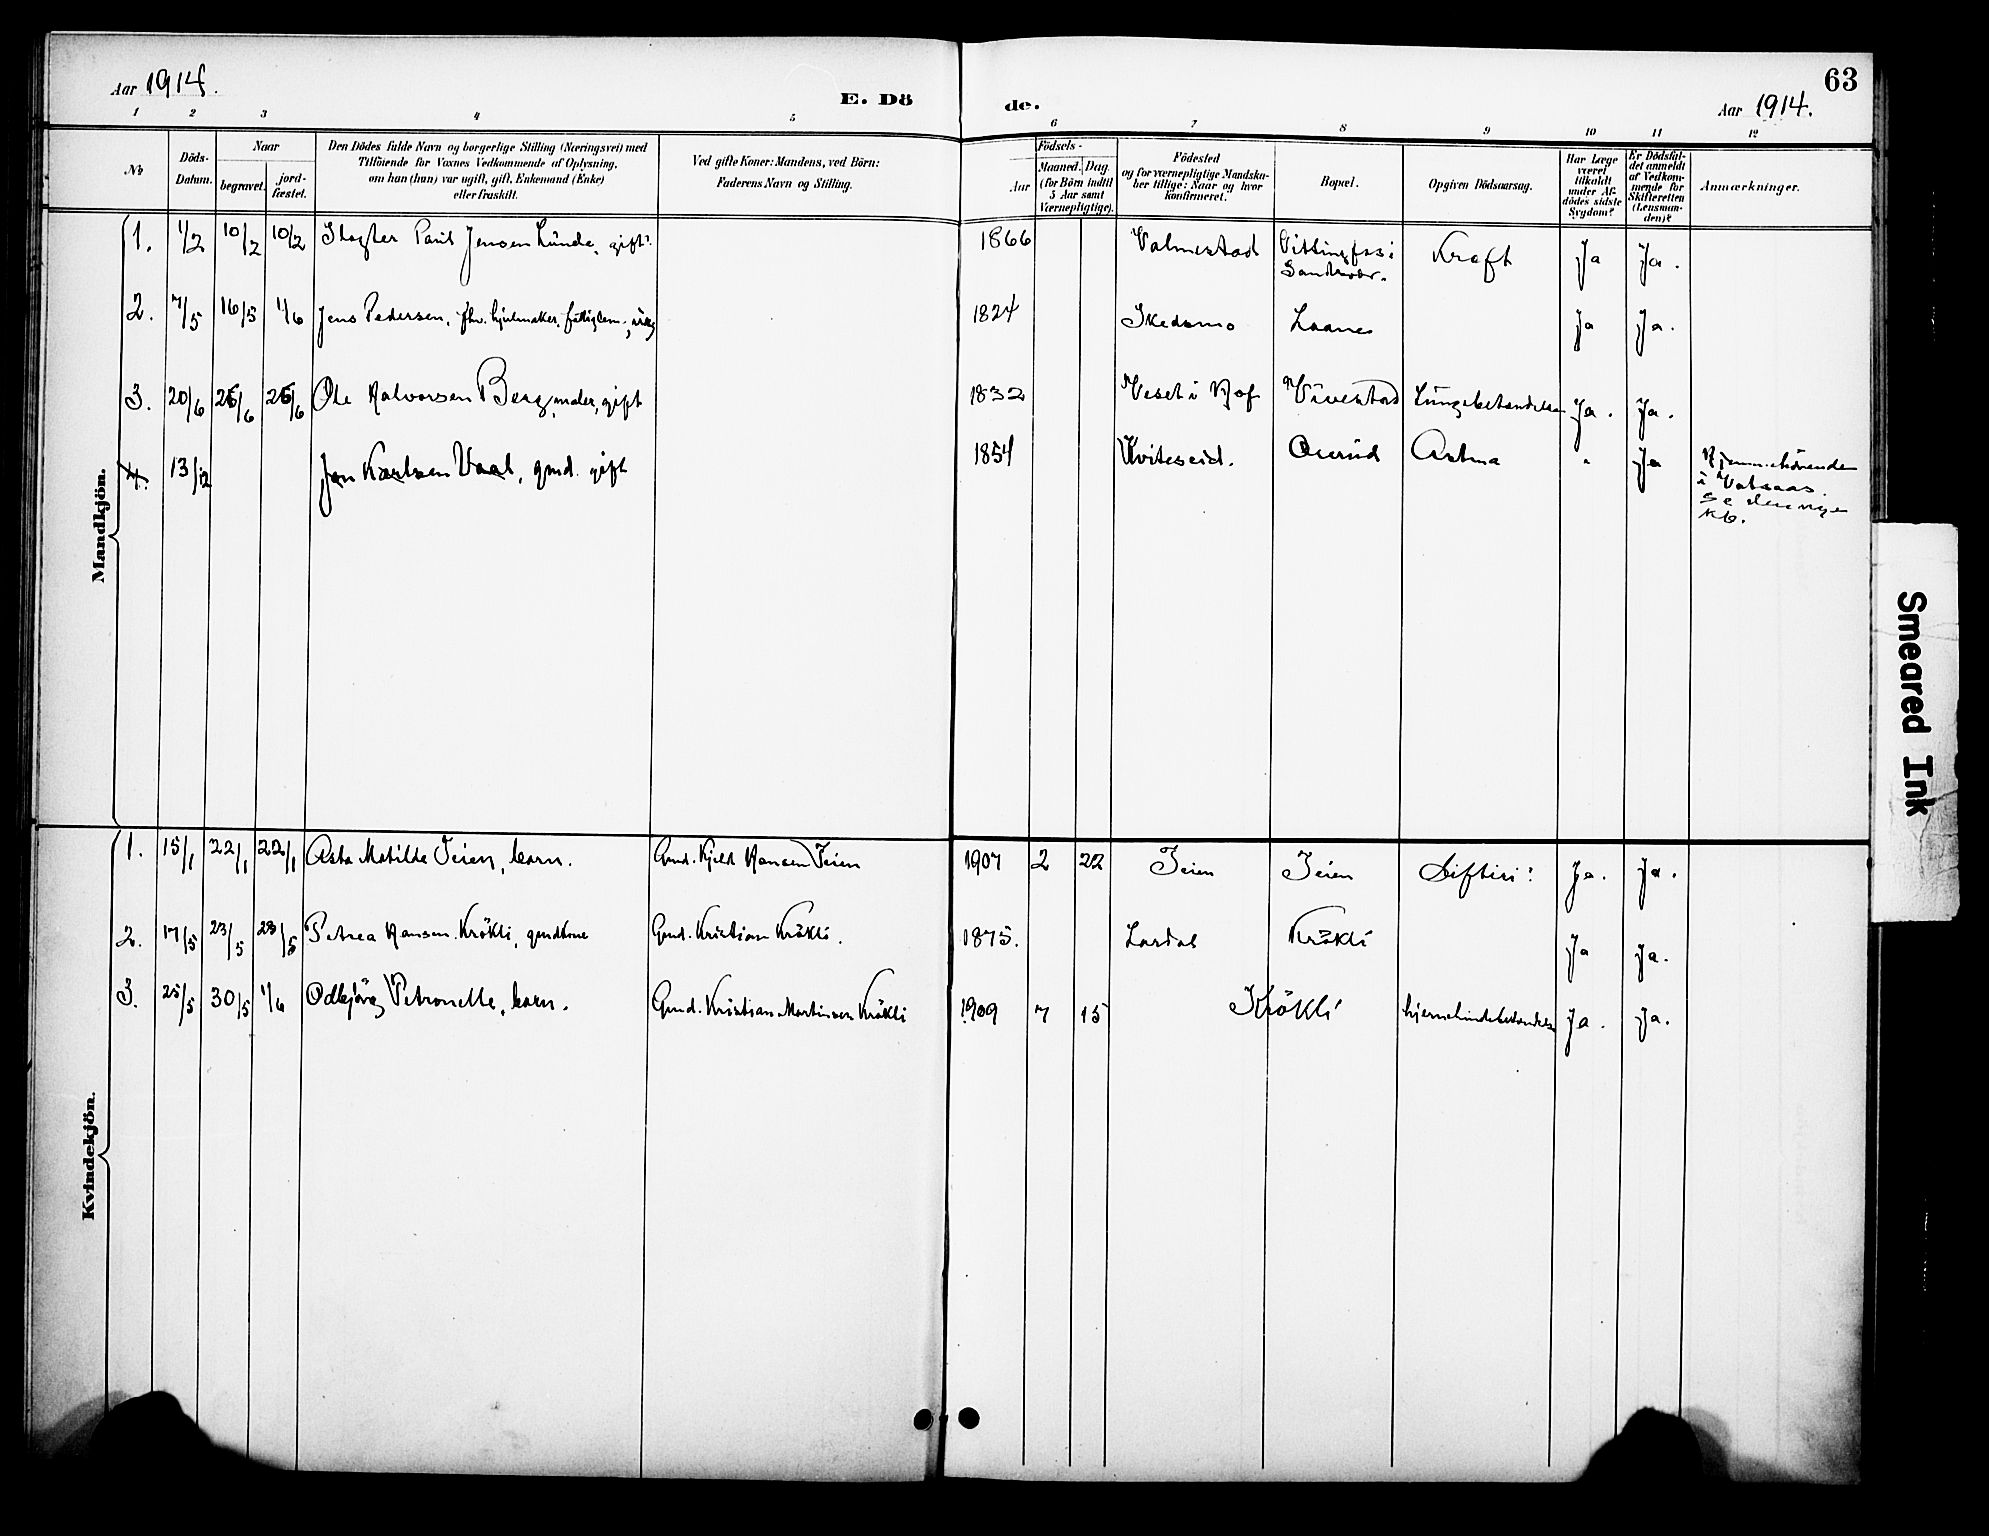 63
Aar 1914.
E. Dö
de.
Aar 1914.
1 2 3 4 5 6 7 8 9 10 11 12
No
Döds-
Datum.
Naar
begravet.
jord-
fæstet.
Den Dödes fulde Navn og borgerlige Stilling (Næringsvei) med
Tilföiende for Voxnes Vedkommende af Oplysning,
om han (hun) var ugift, gift, Enkemand (Enke)
eller fraskilt.
Ved gifte Koner: Mandens, ved Börn:
Faderens Navn og Stilling.
Födsels-
Aar
Maaned. Dag.
(for Börn indtil
5 Aar samt
Værnepligtige).
Födested
og for værnepligtige Mandska-
ber tillige: Naar og hvor
konfirmeret.
Bopæl.
Opgiven Dödsaarsag.
Har Læge
været
tilkaldt
under Af-
dödes sidste
Sygdom?
Er Dödsfal-
det anmeldt
af Vedkom-
mende for
Skifteretten
(Lensman-
den)?
Anmærkninger.
Mandkjön.
1. 1/2 10/2 10/2 Slagter Paul Jensen Lunde, gift. 1866 Valmestad Vittingfos i Kraft Ja Ja.
Sandsvær.
2. 7/5 16/5 1/6 Jens Pedersen, fhv. hjulmaker, fattiglem, 1824 Skedsmo Laane Ja Ja.
3. 20/6 26/6 26/6 Ole Halvorsen Berg, maler, gift 1832 Hof Lungebetændelse Ja. Ja.
4. 13/12 Jon Karlsen Vaal, gmd. gift 1854 Kviteseid. Astma " Ja Hjemmehörende
i Vatsaas.
Se
kb.
Kvindekjön.
1. 15/1 22/1 22/1 Asta Matilde Teien, barn. Gmd. Kjeld Hansen Teien 1907 2 22 Teien Teien Difteri Ja. Ja.
2. 17/5 23/5 23/5 Petrea Hansen Krökli, gmdkone Gmd. Kristian Krökli. 1875. Lardal Krökli Ja Ja.
3. 25/5 30/5 1/6 Odbjörg Petronelle, barn. Gmd. Kristian Martinsen Krökli 1909 7 15 Krökli hjernehindebetændelse Ja. Ja.
Smeared Ink